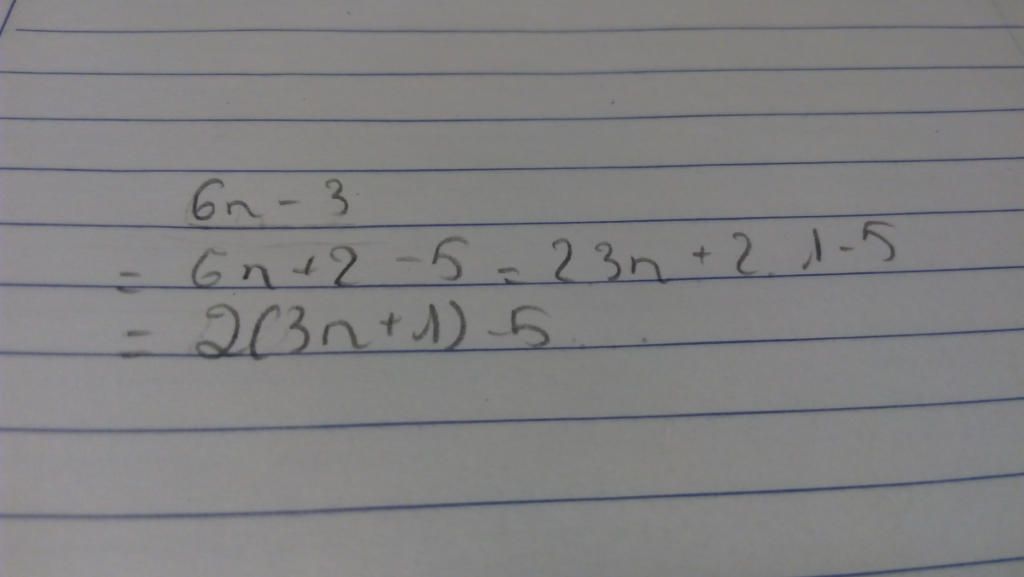 6n - 3
= 6n + 2 - 5 = 2 3n + 2 . 1 - 5
= 2(3n + 1) - 5